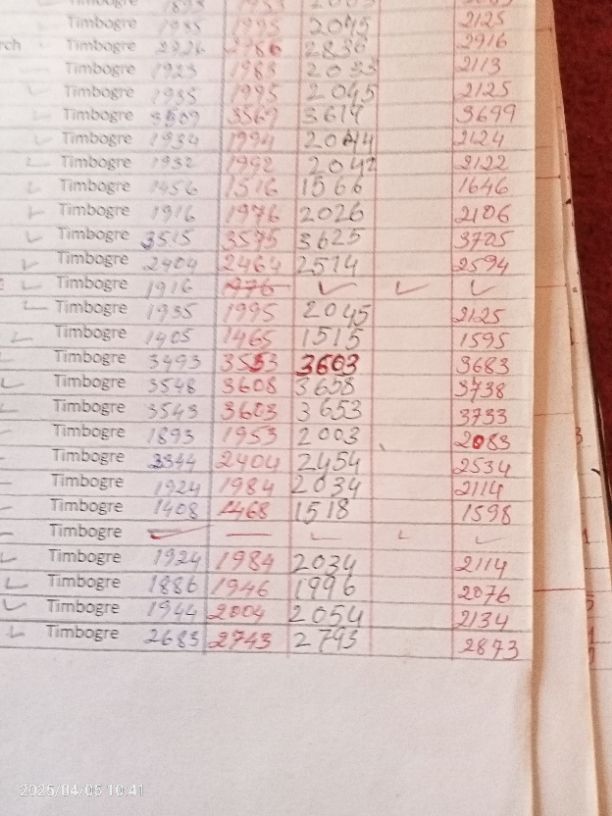 Timbogre 1935 1995 2045 2125
rch Timbogre 2726 2786 2836 2916
Timbogre 1923 1983 2033 2113
Timbogre 1935 1995 2045 2125
Timbogre 3509 3569 3619 3699
Timbogre 1934 1994 2044 2124
Timbogre 1932 1992 2042 2122
Timbogre 1456 1516 1566 1646
Timbogre 1916 1976 2026 2106
Timbogre 3515 3575 3625 3705
Timbogre 2404 2464 2514 2594
Timbogre 1916 1976 ✓ ✓ ✓
Timbogre 1935 1995 2045 2125
Timbogre 1405 1465 1515 1595
Timbogre 3493 3553 3603 3683
Timbogre 3548 3608 3658 3738
Timbogre 3543 3603 3653 3733
Timbogre 1893 1953 2003 2083
Timbogre 2404 2454 2534
Timbogre 1924 1984 2034 2114
Timbogre 1408 1468 1518 1598
Timbogre
Timbogre 1924 1984 2034 2114
Timbogre 1886 1946 1996 2076
Timbogre 1944 2004 2054 2134
Timbogre 2683 2743 2793 2873
2025/04/05 10:41